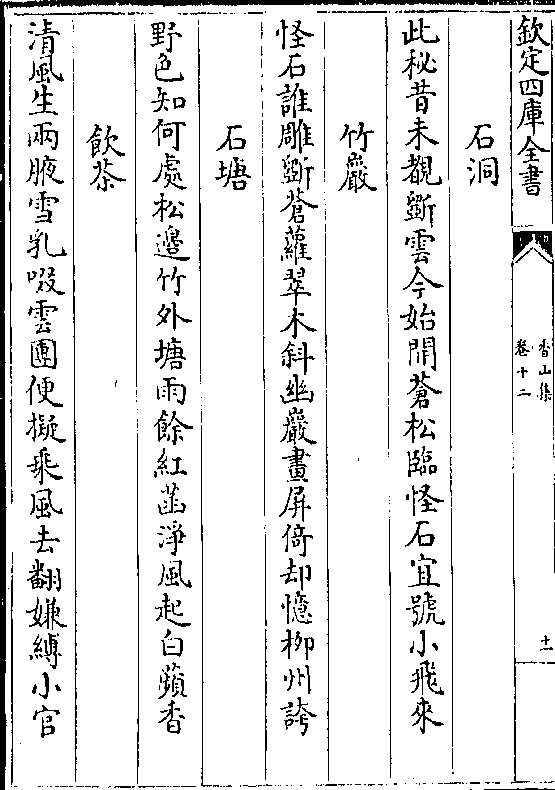 欽定四庫全書
香山集
卷十二
十一
石洞
此秘昔未覩斵雲今始開蒼松臨怪石宜號小飛來
竹巖
怪石誰雕斵蒼蘿翠木斜幽巖畫屏倚却憶柳州誇
石塘
野色知何處松邉竹外塘雨餘紅菡淨風起白蘋香
飲茶
清風生兩腋雪乳啜雲團便擬乗風去翻嫌縛小官